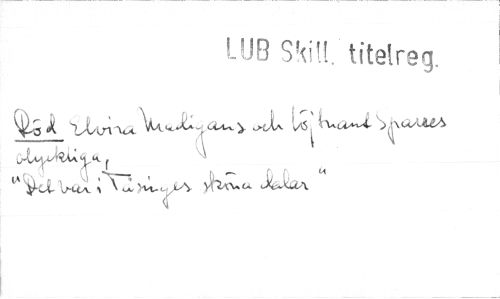 LUB Skill. titelreg.
Röd Elvira Madigans och Löjtnant Sparres
olyckliga,
"Det var i Tåsinges sköna dalar"